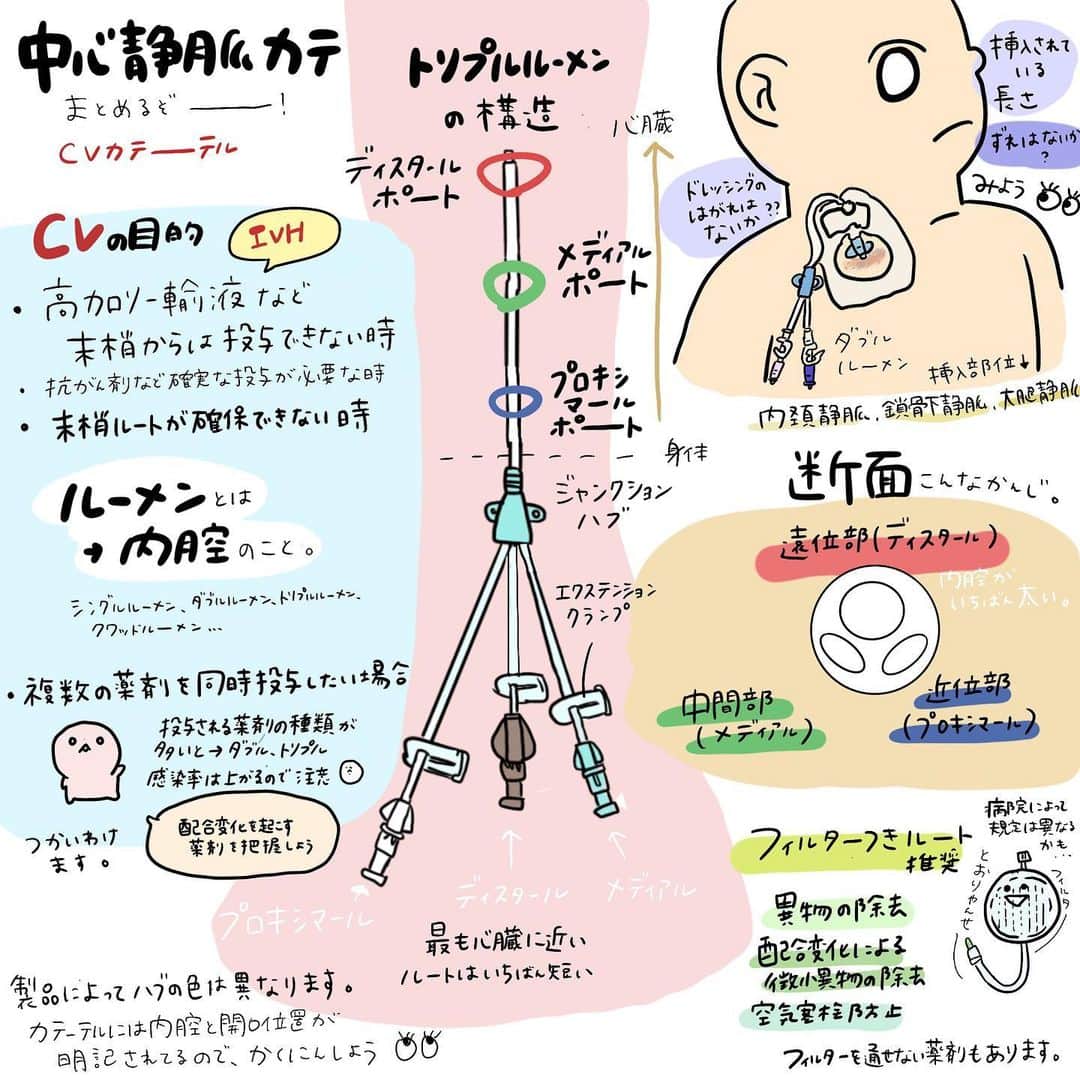 中心静脈カテ
まとめるぞ――!
CVカテーテル
CVの目的
IVH
・高カロリー輸液など
末梢からは投与できない時
・抗がん剤など確実な投与が必要な時
・末梢ルートが確保できない時
ルーメンとは
→内腔のこと。
シングルルーメン、ダブルルーメン、トリプルルーメン、
クワッドルーメン…
・複数の薬剤を同時投与したい場合
投与される薬剤の種類が
多いと→ダブル、トリプル
感染率は上がるので注意
つかいわけ
ます。
配合変化を起こす
薬剤を把握しよう
製品によってハブの色は異なります。
カテーテルには内腔と開口位置が
明記されてるので、かくにんしよう
トリプルルーメン
の構造
心臓
ディスタール
ポート
メディアル
ポート
プロキシ
マール
ポート
身体
ジャンクション
ハブ
エクステンション
クランプ
プロキシマール
ディスタール
メディアル
最も心臓に近い
ルートはいちばん短い
挿入されて
いる
長さ
ずれはないか
?
みよう
ドレッシングの
はがれは
ないか??
ダブル
ルーメン
挿入部位↓
内頚静脈、鎖骨下静脈、大腿静脈
断面こんなかんじ。
遠位部(ディスタール)
内腔が
いちばん太い。
中間部
(メディアル)
近位部
(プロキシマール)
フィルターつきルート
推奨
病院によって
規定は異なる
かも…
フィルタ
とおりゃんせ
異物の除去
配合変化による
微小異物の除去
空気塞栓防止
フィルターを通せない薬剤もあります。